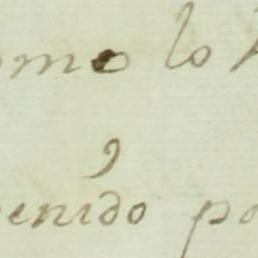 omo lo
enido po